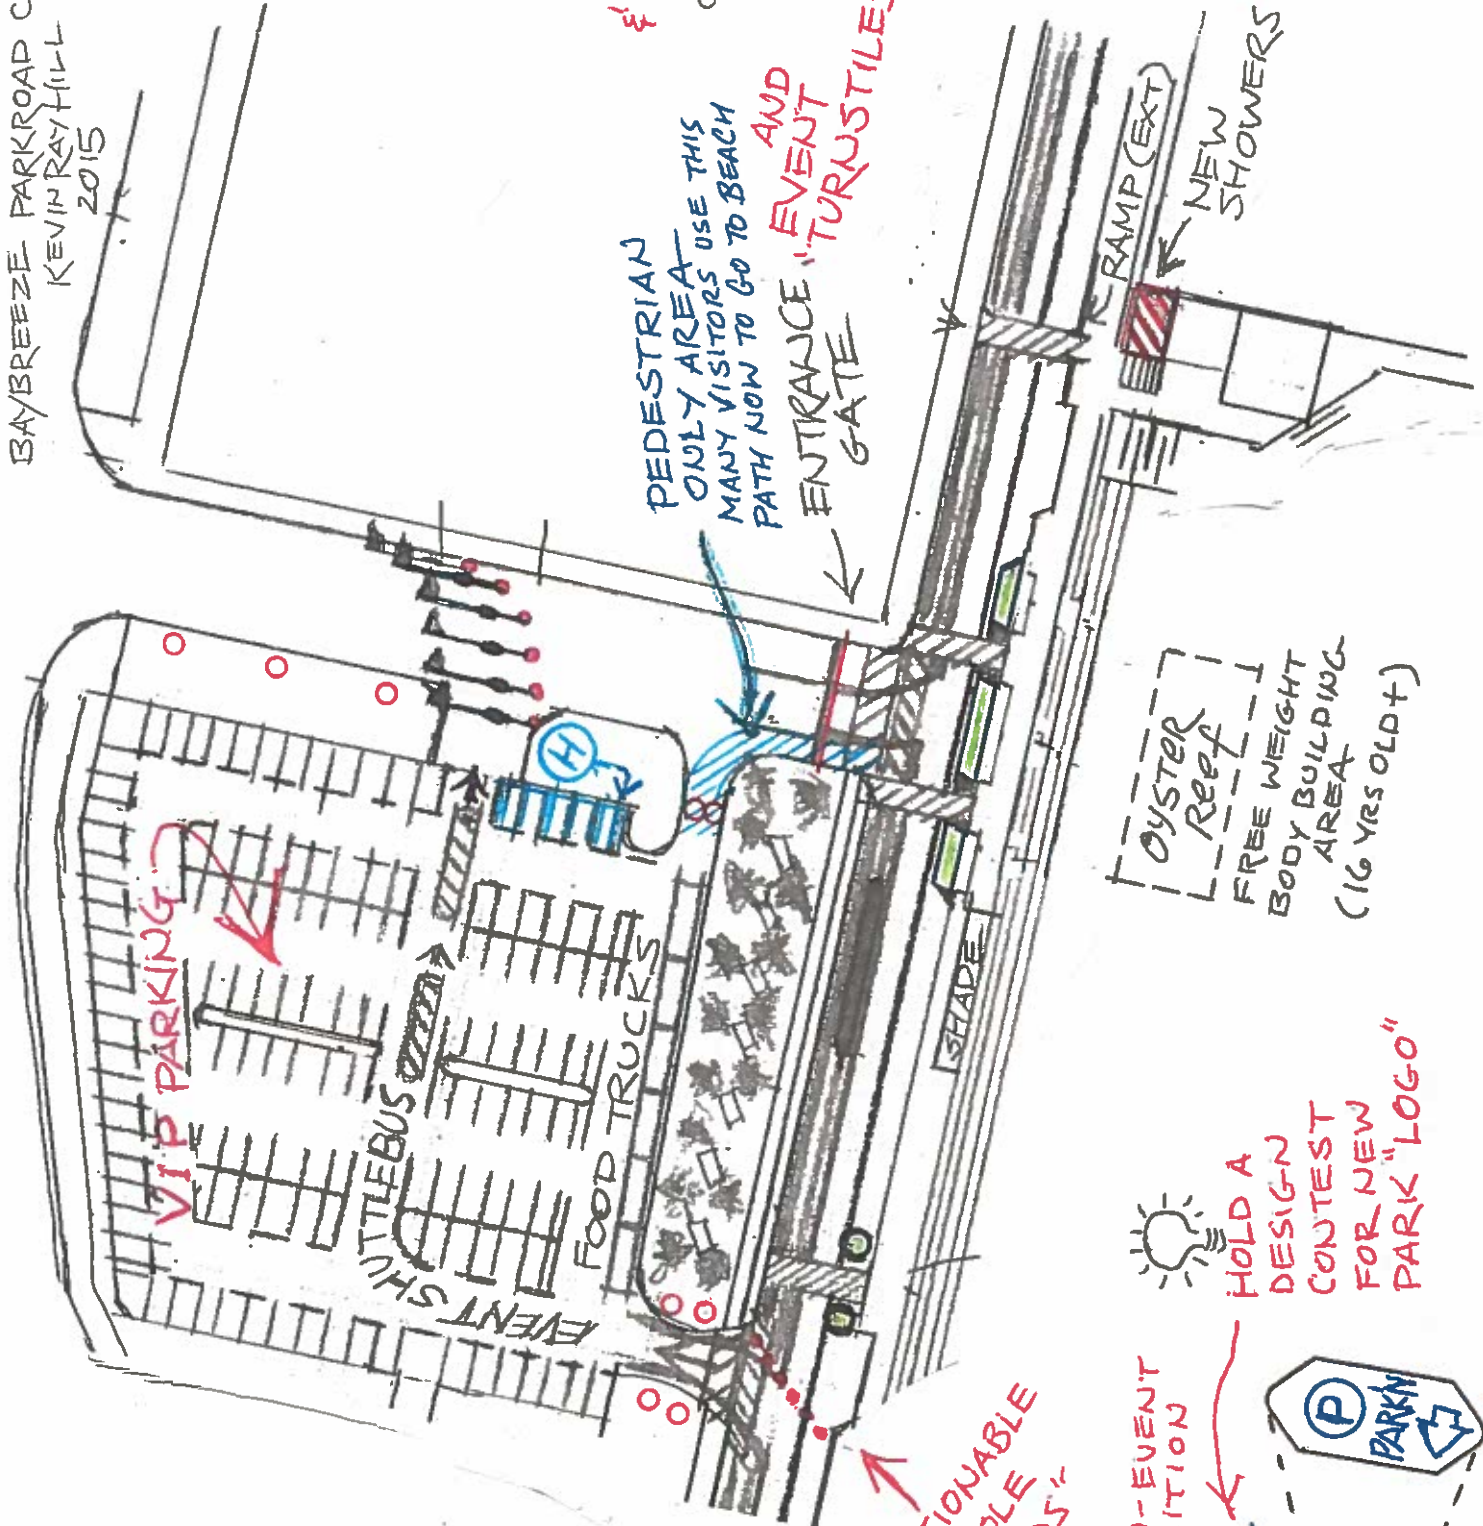 BAYBREEZE PARKROAD C
KEVIN RAY HILL
2015
&
PEDESTRIAN
ONLY AREA
MANY VISITORS USE THIS
PATH NOW TO GO TO BEACH
ENTRANCE
GATE
AND
"EVENT
TURNSTILES
RAMP (EXT)
NEW
SHOWERS
VIP PARKING
H
EVENT SHUTTLEBUS
FOOD TRUCKS
SHADE
OYSTER
REEF
FREE WEIGHT
BODY BUILDING
AREA
(16 YRS OLD+)
HOLD A
DESIGN
CONTEST
FOR NEW
PARK "LOGO"
-EVENT
ITION
TIONABLE
OLE
DS"
P
PARKIN